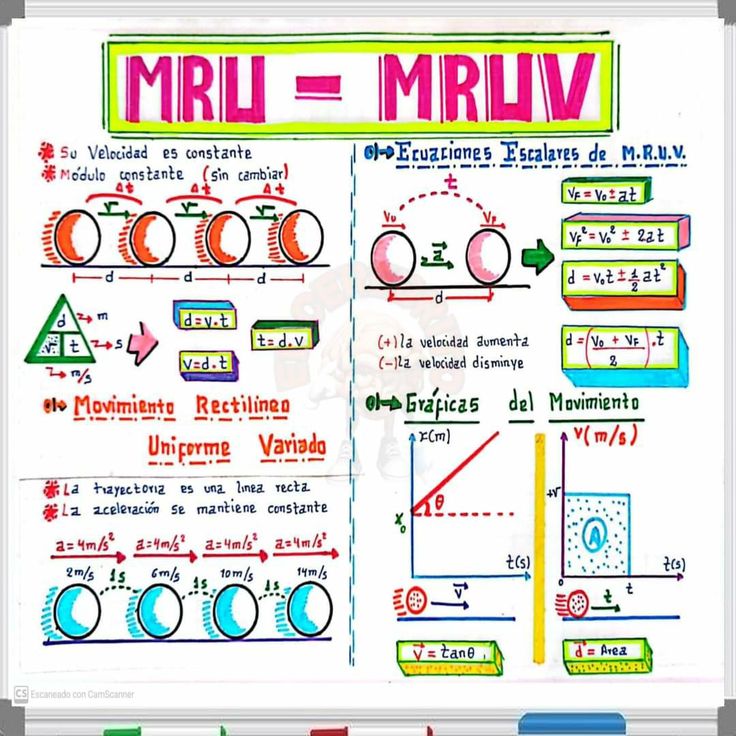 MRU - MRUV
* Su Velocidad es constante
* Módulo constante (sin cambiar)
Δt Δt Δt
v v v
d d d
d → m
v t → s
→ m/s
d=v.t
v=d.t
t=d.v
Movimiento Rectilíneo
Uniforme Variado
* La trayectoria es una linea recta
* La aceleración se mantiene constante
a=4m/s² a=4m/s² a=4m/s² a=4m/s²
2m/s 1s 6m/s 1s 10m/s 1s 14m/s
Ecuaciones Escalares de M.R.U.V.
t
Vo VF
a
d
VF = Vo ± at
VF² = Vo² ± 2at
d = Vot ± 1/2 at²
d = (Vo + VF / 2).t
(+) la velocidad aumenta
(-) la velocidad disminye
Gráficas del Movimiento
x(m)
θ
Xo
t(s)
v
V = tanθ
V(m/s)
+V
A
o t
t(s)
t
d = Area
CS Escaneado con CamScanner